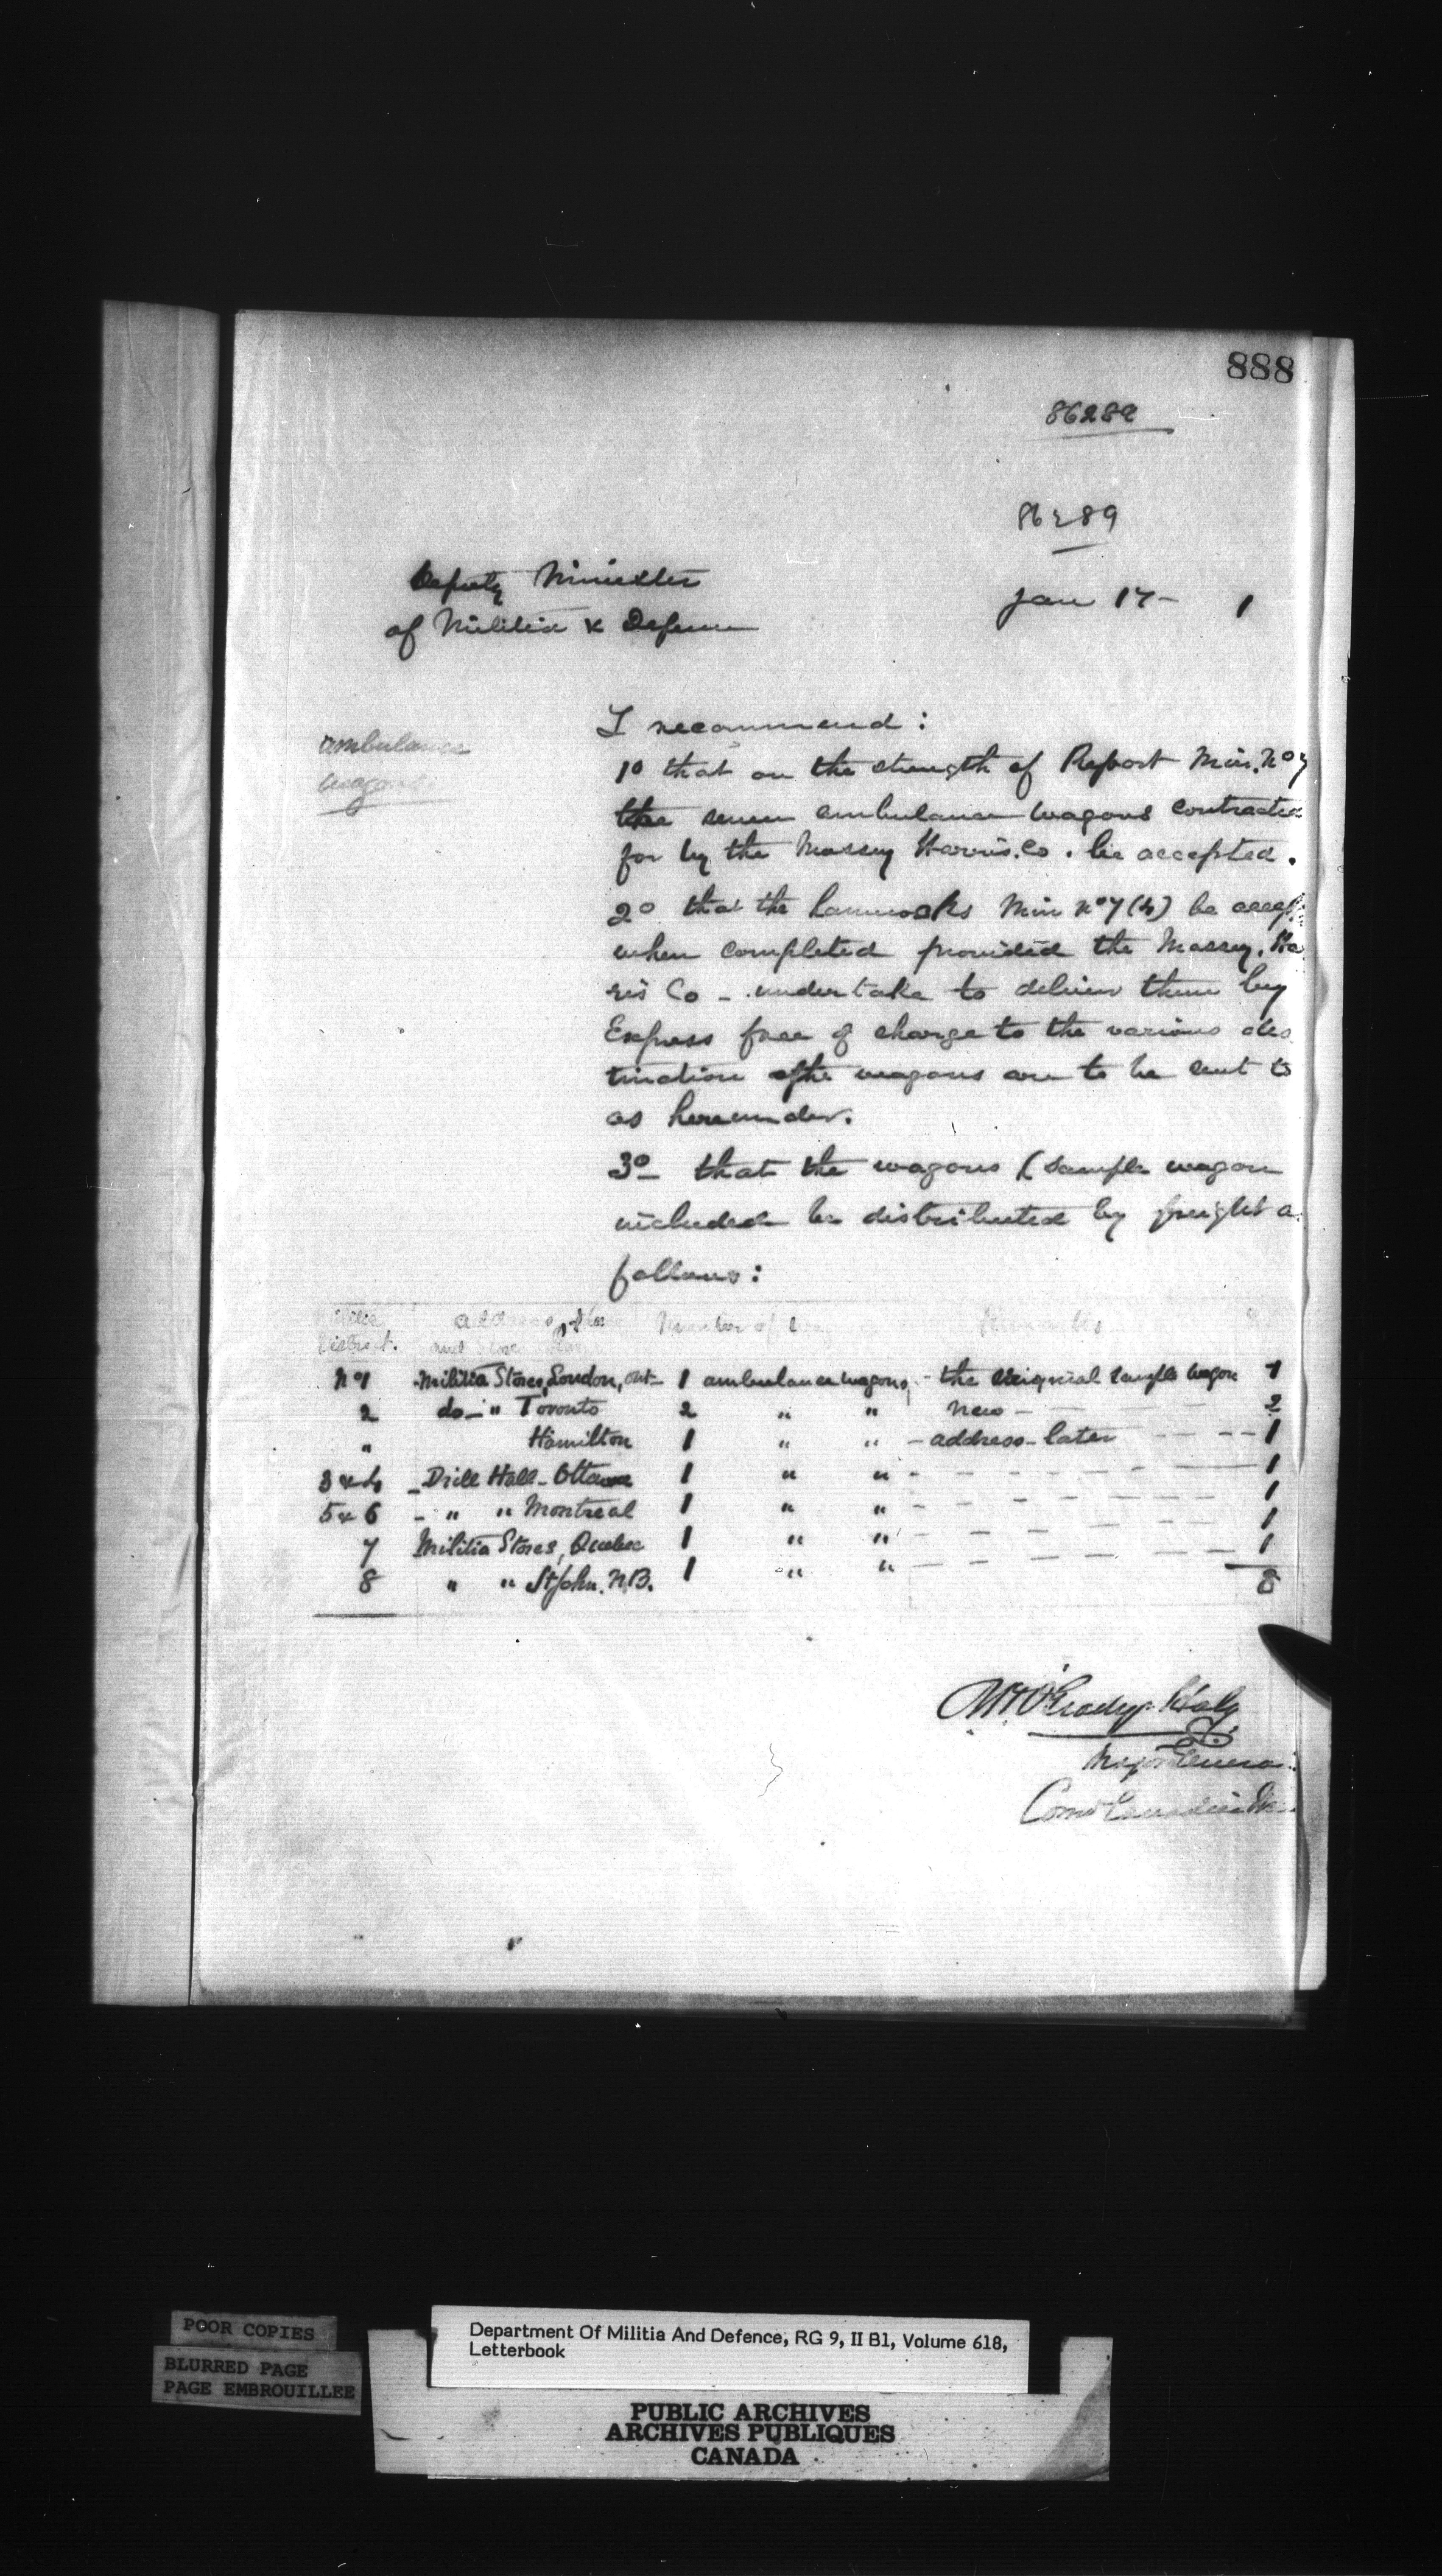 888
86289
86289
Deputy Minister
of Militia & Defence
Jan 17 - 1
ambulance
wagons
I recommend:
1º that on the strength of Report Min. Nº 7
the seven ambulance wagons contracted
for by the Massey Harris. Co. be accepted.
2º that the hammocks Min Nº 7 (4) be accep
when completed provided the Massey. Ha
ris Co - undertake to deliver them by
Express free of charge to the various des
tination the wagons are to be sent to
as hereunder.
3º - that the wagons (sample wagon
included be distributed by freight a
follows:
District. address Number of
Nº 1 Militia Stores, London, Ont- 1 ambulance wagons, - the original sample wagon 1
2 do - " Toronto 2 " " New - 2
" Hamilton 1 " " - address - later - - - 1
3 & 4 - Drill Hall - Ottawa 1 " " - - - 1
5 & 6 - " " Montreal 1 " " - - - 1
7 Militia Stores, Quebec 1 " " - - - 1
8 " " St John. N.B. 1 " " - - - 1
8
O'Grady-Haly
Major Genera
Comd Canadian
POOR COPIES
BLURRED PAGE
PAGE EMBROUILLEE
Department Of Militia And Defence, RG 9, II B1, Volume 618,
Letterbook
PUBLIC ARCHIVES
ARCHIVES PUBLIQUES
CANADA